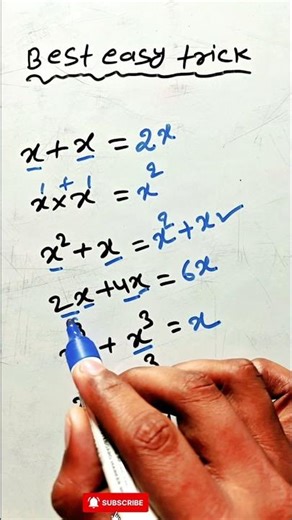 Best easy trick
x + x = 2x
x¹ × x¹ = x²
x² + x = x² + x ✓
2x + 4x = 6x
+ x³ = x
SUBSCRIBE